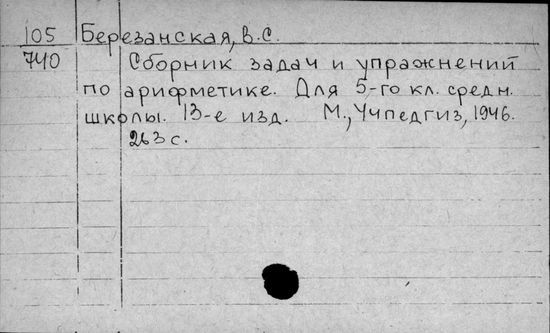 105 Березанская, В.С.
740 Сборник задач и упражнений
по арифметике. Для 5-го кл. средн.
школы. 13-е изд. М., Учпедгиз, 1946.
263 с.